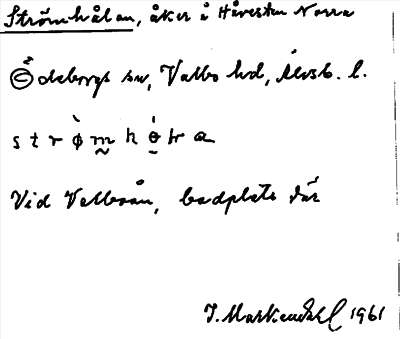 Strömhålan, åker å Håvesten Norra
Ödeborgs sn, Valbo hd, Älvsb. l.
Vid Valboån, badplats där
J. Markendahl 1961